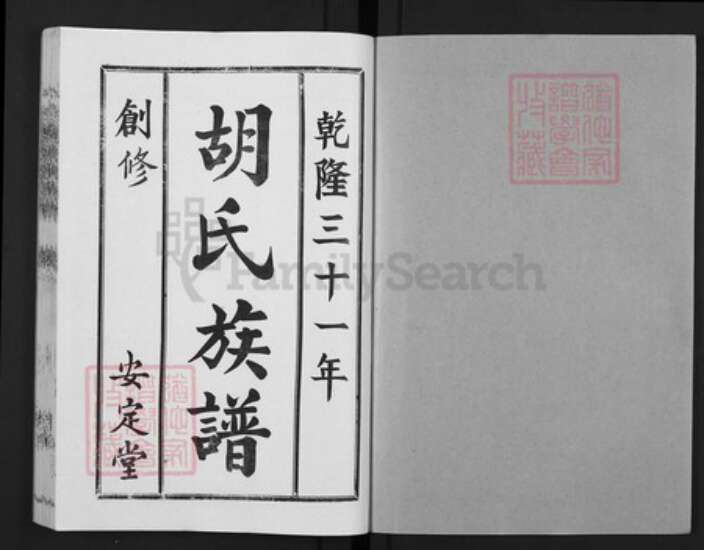 乾隆三十一年
胡氏族譜
創修 安定堂
FamilySearch